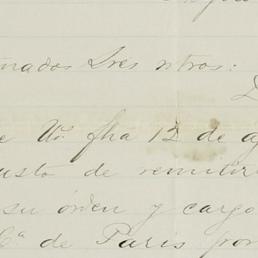 mados Sres ntros:
e Un. fha 12 de ag
usto de remitir
su órden y cargo
Cª de Paris por